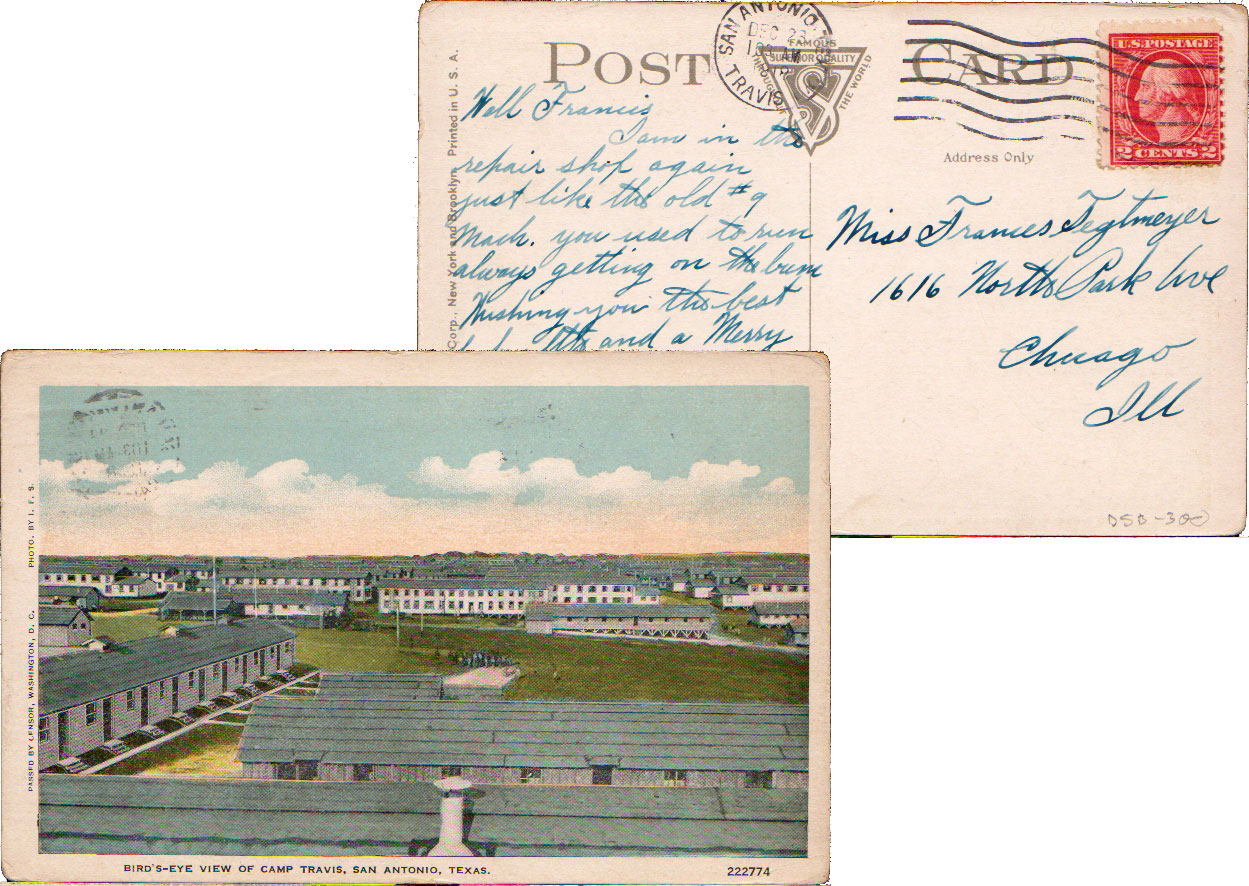 POST CARD
SAN ANTONIO
DEC 23
AM
TRAVIS
FAMOUS
SUPERIOR QUALITY
THROUGHOUT
THE WORLD
U.S. POSTAGE
2 CENTS 2
Corp., New York and Brooklyn. Printed in U. S. A.
Address Only
Well Francis
I am in the
repair shop again
just like the old #9
Mach. you used to run
always getting on the bum
Wishing you the best
and a Merry
Miss Frances Tegtmeyer
1616 North Park Ave
Chicago
Ill
DSB-300
PASSED BY CENSOR, WASHINGTON, D. C. PHOTO. BY I. F. S.
BIRD'S-EYE VIEW OF CAMP TRAVIS, SAN ANTONIO, TEXAS.
222774